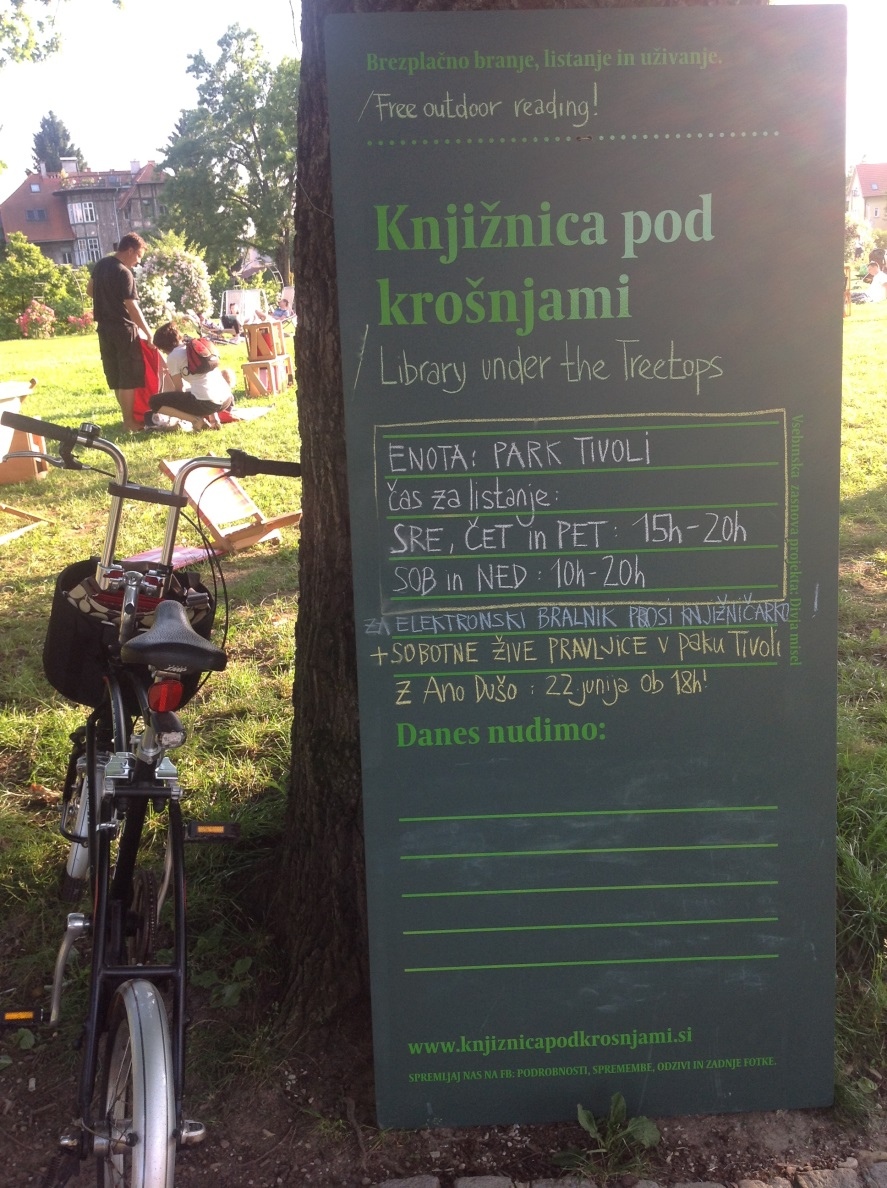 Brezplačno branje, listanje in uživanje.
/Free outdoor reading!
Knjižnica pod
krošnjami
/Library under the Treetops
ENOTA: PARK TIVOLI
čas za listanje:
SRE, ČET in PET: 15h-20h
SOB in NED: 10h-20h
ZA ELEKTRONSKI BRALNIK PROSI KNJIŽNIČARKO!
+SOBOTNE ŽIVE PRAVLJICE V paku Tivoli
Z Ano Dušo: 22 junija ob 18h!
Danes nudimo:
www.knjiznicapodkrosnjami.si
SPREMLJAJ NAS NA FB: PODROBNOSTI, SPREMEMBE, ODZIVI IN ZADNJE FOTKE.
Vsebinska zasnova projekta: Divja misel